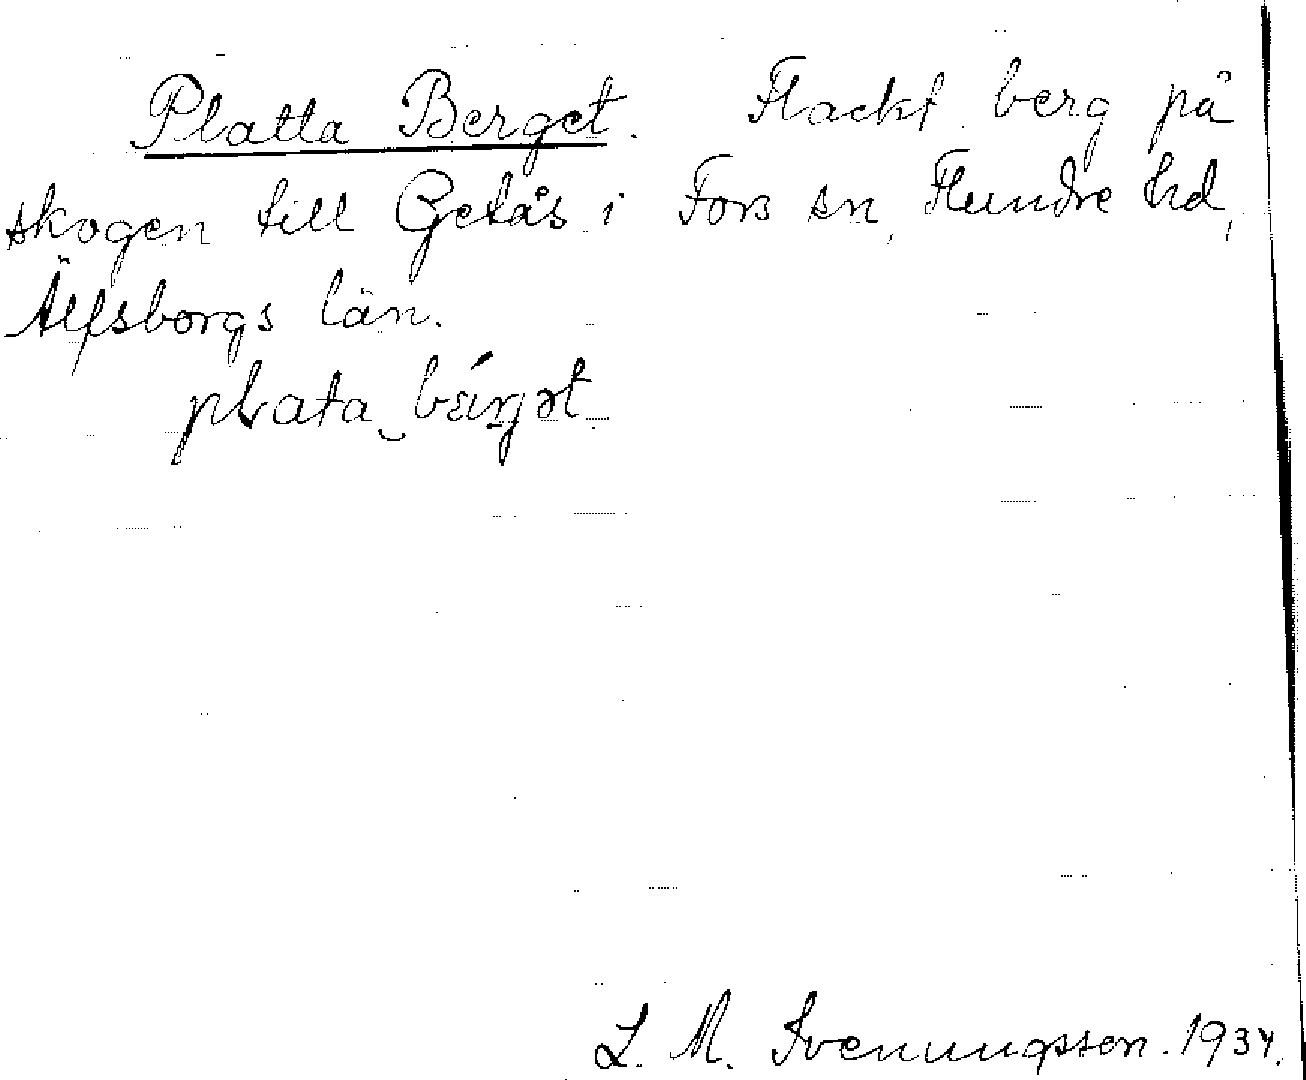 Platta Berget. Flackt berg på
skogen till Getås i Fors sn, Flundre hd,
Älfsborgs län.
L. M. Svenungsson. 1934.